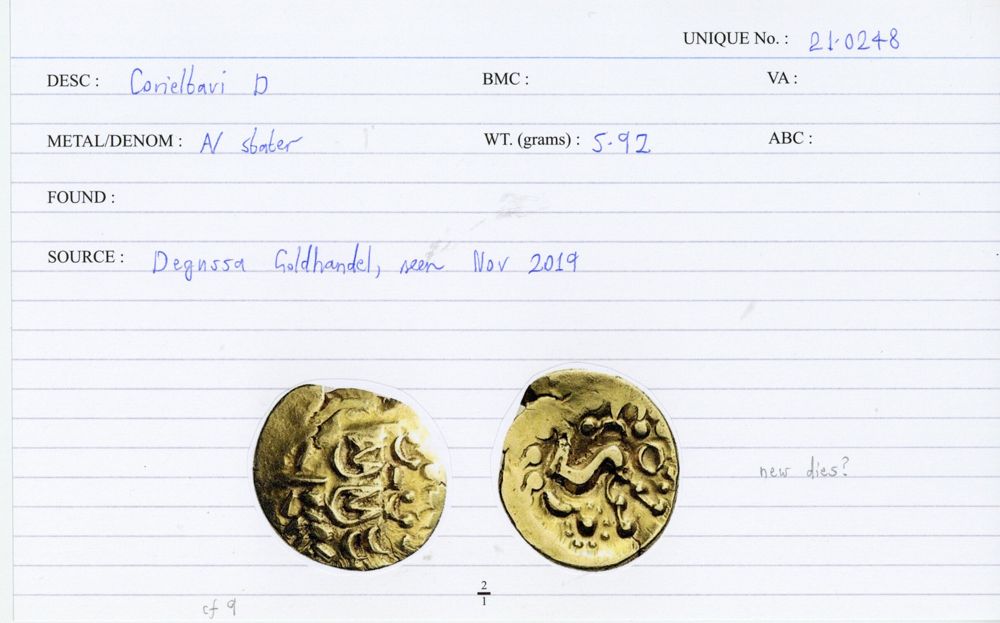 UNIQUE No. : 21.0248
DESC : Corieltavi D BMC : VA :
METAL/DENOM : A/ stater WT. (grams) : 5.92 ABC :
FOUND :
SOURCE : Degussa Goldhandel, seen Nov 2019
new dies?
2
1
cf 9